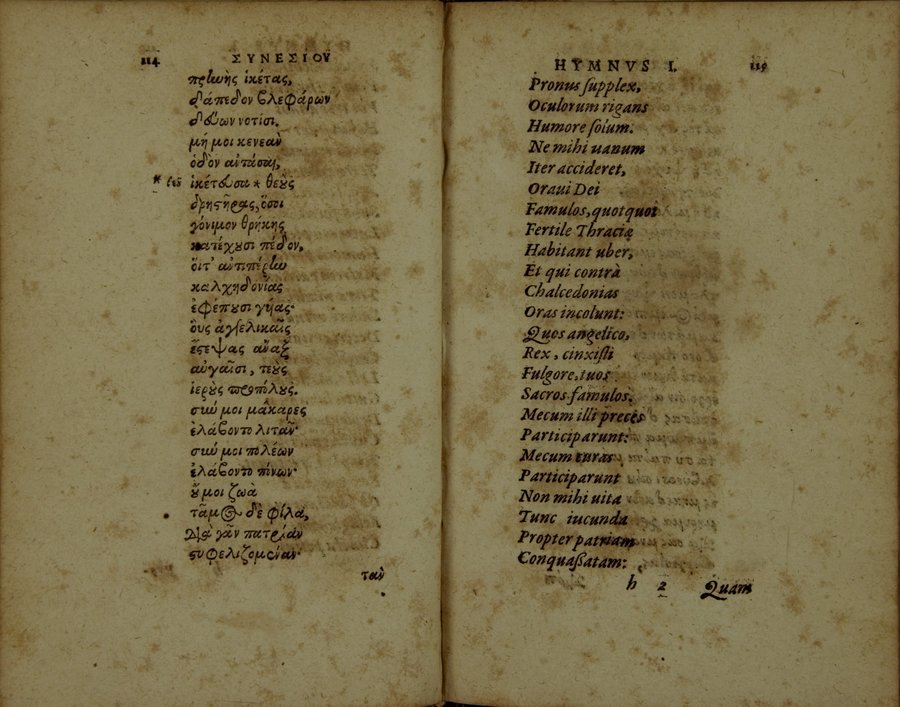 114
ΣΥΝΕΣΙΟΥ
πρἰωὴς ἱκέτας,
δάπεδον βλεφάρων
δεύων νοτίσι.
μή μοι κενεὰν
ὁδὸν αὐτάσαι,
* ἱκέτευσα * θεοὺς
δρηστῆρας, ὅσοι
γόνιμον θρήκης
κατέχουσι πέδον.
ὅιτ' αὐτιπέρἰω
καλχηδονίας
ἐφέπουσι γύας·
οὓς ἀγγελικαῖς
ἔστεψας ἄναξ
αὐγαῖσι, τεοὺς
ἱεροὺς προπόλους.
σιώ μοι μάκαρες
ἐλάβοντο λιτᾶν·
σιώ μοι πολέων
ἐλάβοντο πόνων·
οὔ μοι ζωὰ
τᾶμος δὲ φίλα,
Διὰ γᾶν πατρίαν
στυφελιζομέναν·
ταν
HYMNVS I.
115
Pronus supplex,
Oculorum rigans
Humore soium.
Ne mihi uanum
Iter accideret,
Oraui Dei
Famulos, quotquot
Fertile Thraciæ
Habitant uber,
Et qui contrà
Chalcedonias
Oras incolunt:
Quos angelico,
Rex, cinxisti
Fulgore, tuos
Sacros famulos.
Mecum illi preces
Participarunt:
Mecum curas
Participarunt
Non mihi uita
Tunc iucunda
Propter patriam
Conquassatam:
h 2 Quam